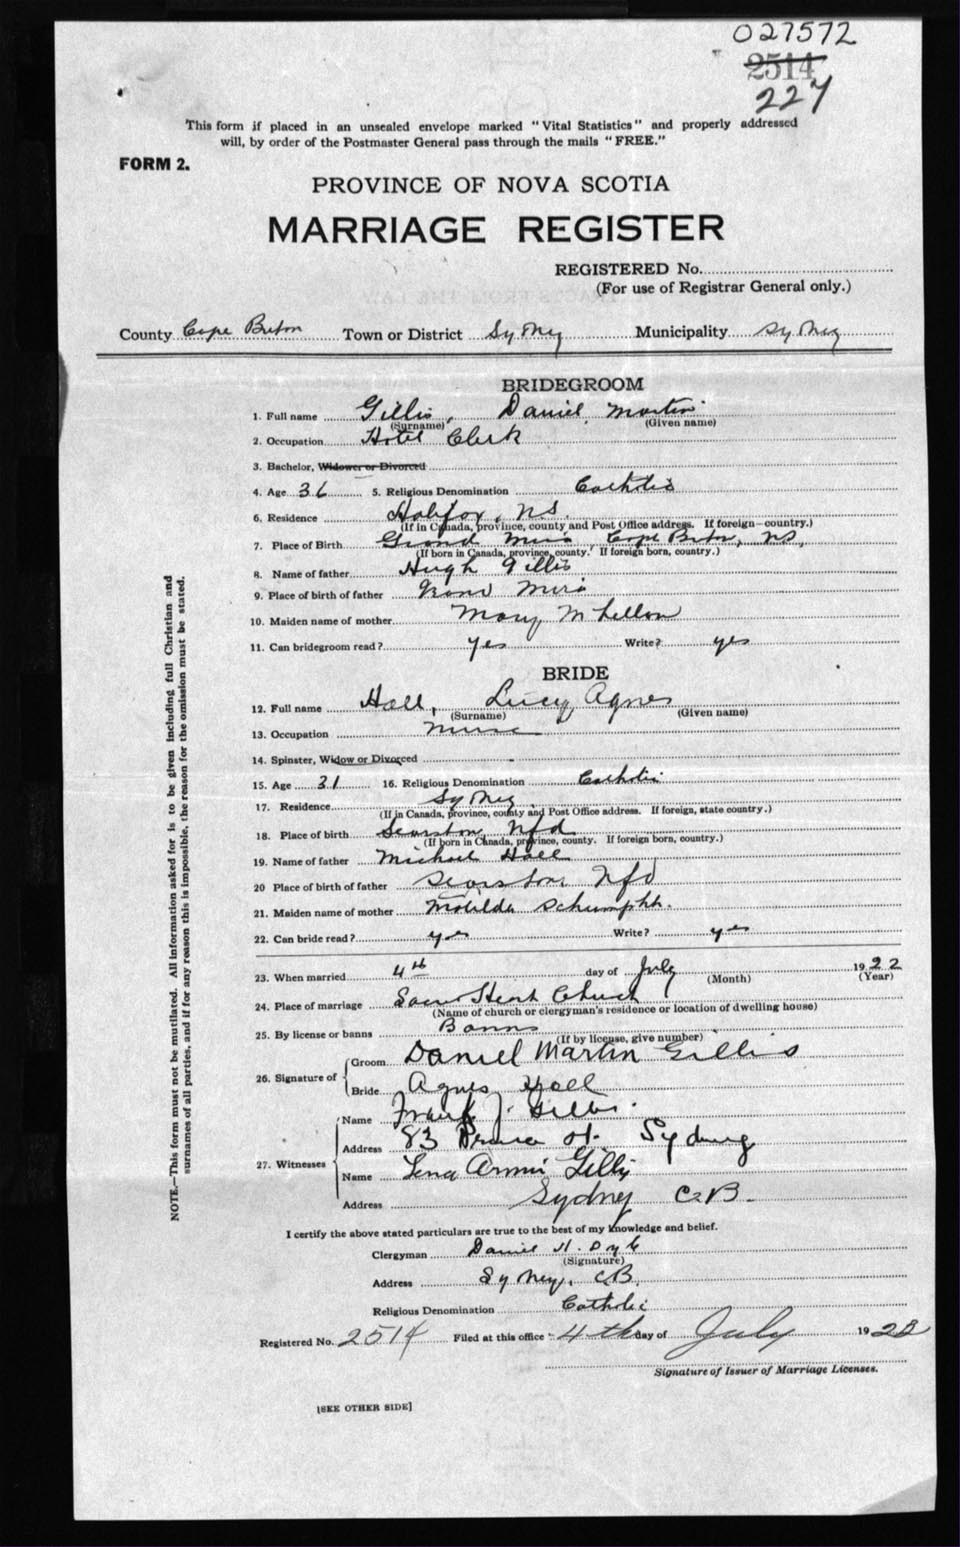 027572
2514
227
This form if placed in an unsealed envelope marked "Vital Statistics" and properly addressed
will, by order of the Postmaster General pass through the mails "FREE."
FORM 2.
PROVINCE OF NOVA SCOTIA
MARRIAGE REGISTER
REGISTERED No.
(For use of Registrar General only.)
County Cape Breton Town or District Sydney Municipality Sydney
BRIDEGROOM
1. Full name Gillis, Daniel Martin
(Surname) (Given name)
2. Occupation Hotel Clerk
3. Bachelor, Widower or Divorced
4. Age 36 5. Religious Denomination Catholic
6. Residence Halifax, N.S.
(If in Canada, province, county and Post Office address. If foreign—country.)
7. Place of Birth Grand Mira, Cape Breton, NS,
(If born in Canada, province, county. If foreign born, country.)
8. Name of father Hugh Gillis
9. Place of birth of father Grand Mira
10. Maiden name of mother Mary
11. Can bridegroom read? yes Write? yes
BRIDE
12. Full name Hall, Lucy Agnes
(Surname) (Given name)
13. Occupation Nurse
14. Spinster, Widow or Divorced
15. Age 31 16. Religious Denomination Catholic
17. Residence Sydney
(If in Canada, province, county and Post Office address. If foreign, state country.)
18. Place of birth Searston Nfd
(If born in Canada, province, county. If foreign born, country.)
19. Name of father Michael Hall
20 Place of birth of father Searston, Nfd
21. Maiden name of mother Matilda
22. Can bride read? yes Write? yes
23. When married 4th day of July 1922
(Month) (Year)
24. Place of marriage Sacred Heart Church
(Name of church or clergyman's residence or location of dwelling house)
25. By license or banns Banns
(If by license, give number)
26. Signature of Groom Daniel Martin Gillis
Bride Agnes Hall
27. Witnesses Name Frank J. Gillis.
Address 83 Prince St. Sydney
Name Lena Gillis
Address Sydney C.B.
I certify the above stated particulars are true to the best of my knowledge and belief.
Clergyman Daniel
(Signature)
Address Sydney, C.B.
Religious Denomination Catholic
Registered No. 2514 Filed at this office 4th day of July 1922
Signature of Issuer of Marriage Licenses.
[SEE OTHER SIDE]
NOTE.—This form must not be mutilated. All information asked for is to be given including full Christian and
surnames of all parties, and if for any reason this is impossible, the reason for the omission must be stated.